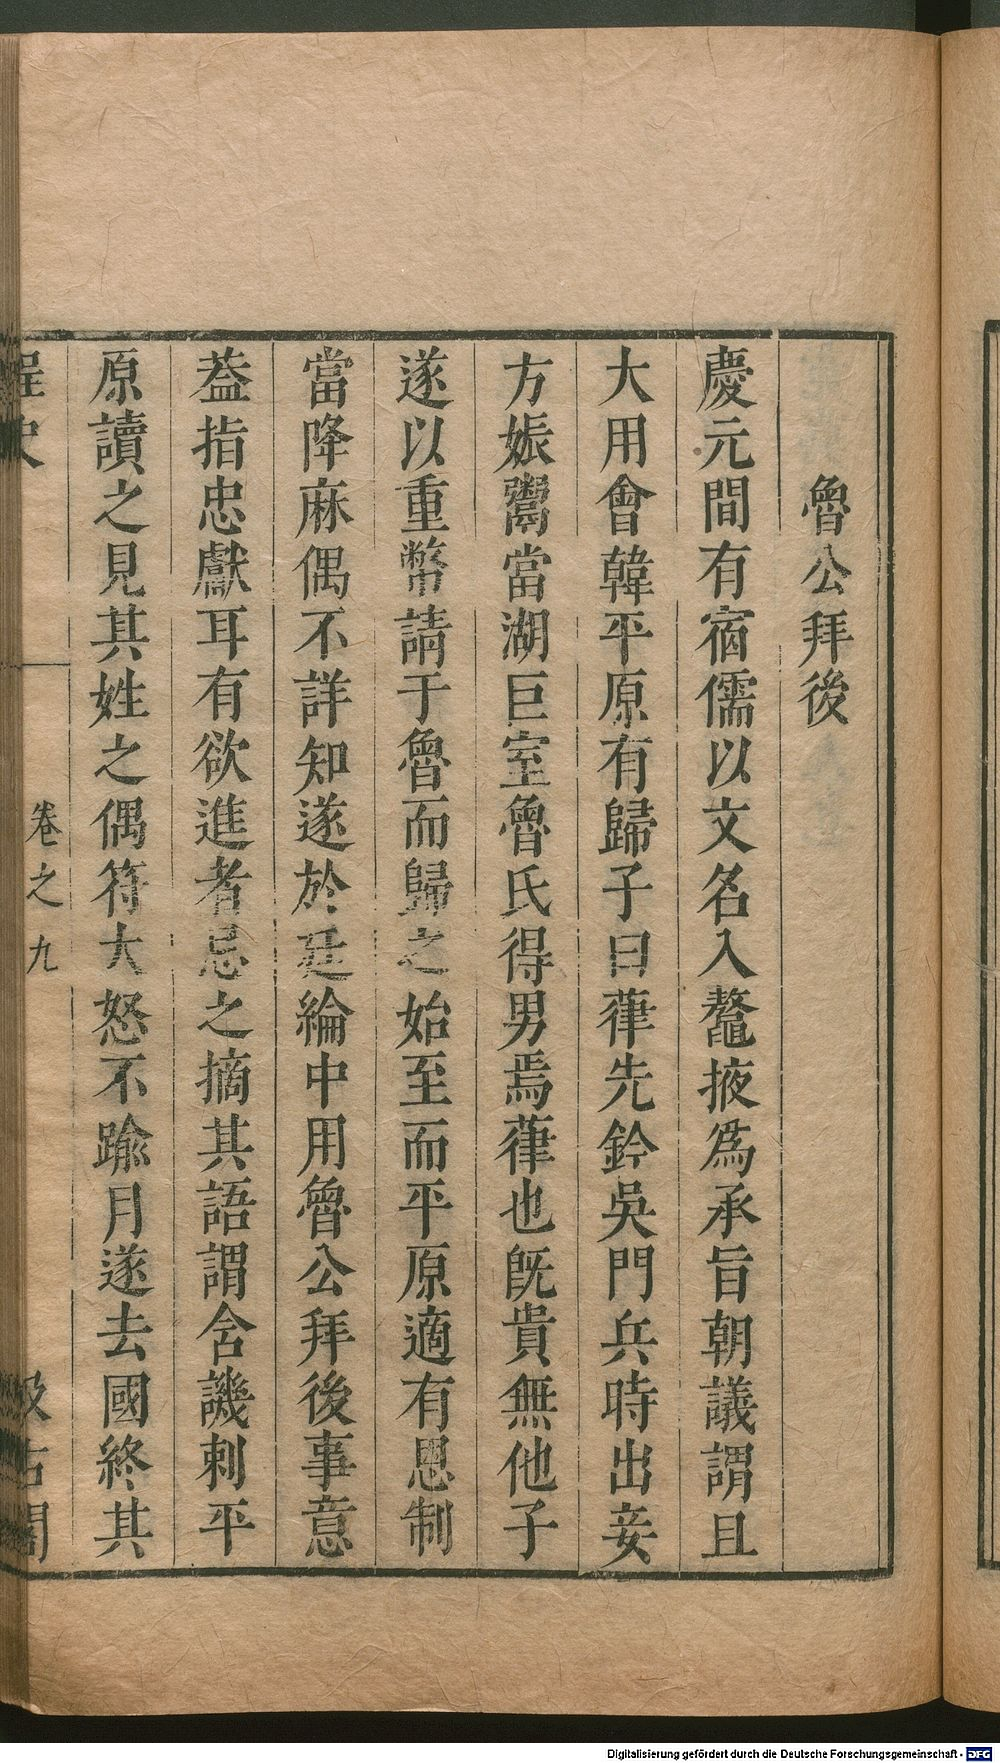 魯公拜後
慶元間有宿儒以文名入鼇掖爲承旨朝議謂且
大用會韓平原有歸子曰葎先鈐吳門兵時出妾
方娠鬻當湖巨室魯氏得男焉葎也旣貴無他子
遂以重幣請于魯而歸之始至而平原適有恩制
當降麻偶不詳知遂於廷綸中用魯公拜後事意
葢指忠獻耳有欲進者忌之摘其語謂含譏刺平
原讀之見其姓之偶符大怒不踰月遂去國終其
桯史
卷之九
汲古閣
Digitalisierung gefördert durch die Deutsche Forschungsgemeinschaft - DFG